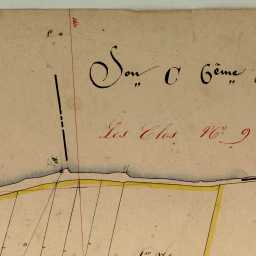 Son C 6ème
Les Clos No 9